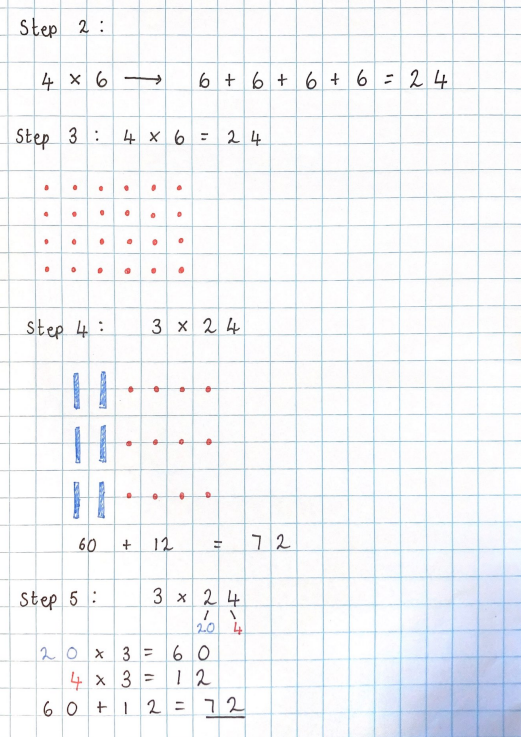 Step 2 :
4 × 6 → 6 + 6 + 6 + 6 = 24
Step 3 : 4 × 6 = 24
Step 4 : 3 × 24
60 + 12 = 72
Step 5 : 3 × 24
20 4
20 × 3 = 60
4 × 3 = 12
60 + 12 = 72